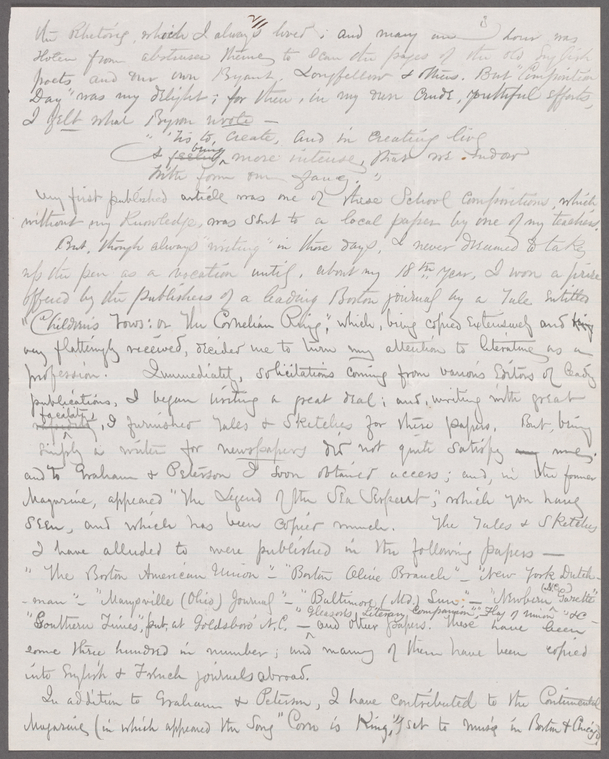 2/
the Rhetoric, which I always loved; and many an hour was
stolen from abstruser themes to scan the pages of the old English
poets, and our own Bryant, Longfellow & others. But "Composition
Day" was my delight; for then, in my own crude, youthful efforts,
I felt what Byron wrote —
"'Tis to create, and in creating live
A being more intense, that we endow
With form our fancy."
My first published article was one of these School Compositions, which
without my knowledge, was sent to a local paper by one of my teachers.
But, though always "writing" in those days, I never dreamed to take
up the pen as a vocation until, about my 18th year, I won a prize
offered by the publishers of a leading Boston journal by a Tale entitled
"Children's Vows: or The Cornelian Ring," which, being copied extensively and
very flatteringly received, decided me to turn my attention to literature as a
profession. Immediately, solicitations coming from various Editors of leading
publications, I began writing a great deal; and, writing with great
facility, I furnished Tales & Sketches for these papers. But, being
simply a writer for newspapers did not quite satisfy
and to Graham & Peterson I soon obtained access; and, in the former
Magazine, appeared "The Legend of the Sea Serpent;" which you have
seen, and which has been copied much. The Tales & Sketches
I have alluded to were published in the following papers —
"The Boston American Union" — "Boston Olive Branch" — "New York Dutch-
-man" — "Marysville (Ohio) Journal" — "Baltimore (Md.) Sun" — "Newbern (N.C.) Gazette"
"Gleason's Literary Companion", "Flag of Union" &c —
"Southern Times", pub. at Goldsboro N.C. — and other papers. These have been
some three hundred in number; and many of them have been copied
into English & French journals abroad.
In addition to Graham & Peterson, I have contributed to the Continental
Magazine (in which appeared the Song "Corn is King," set to music in Boston & Chicago)